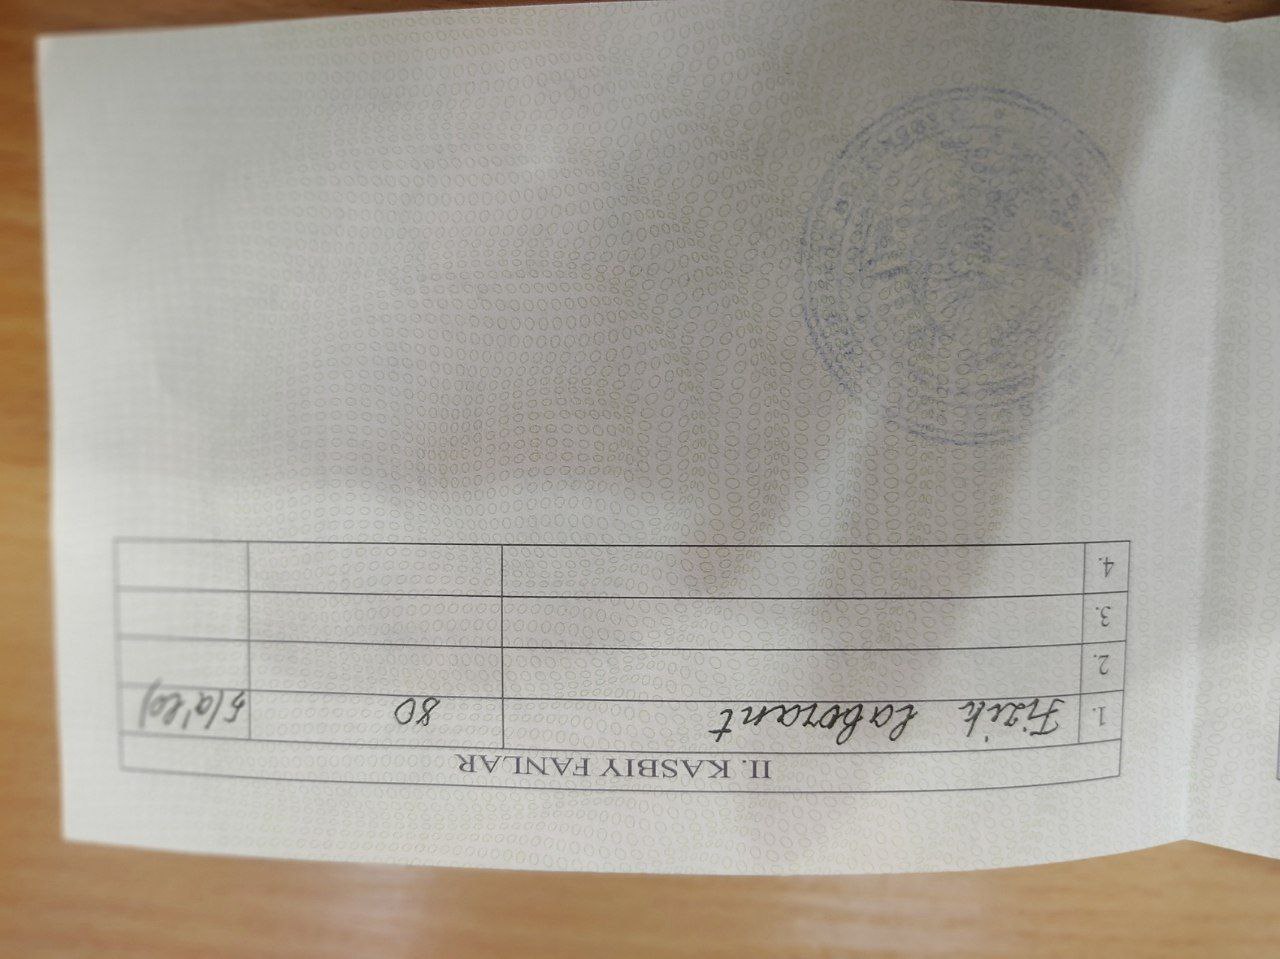 II. KASBIY FANLAR
1. Fizik laborant 80 5(a'lo)
2.
3.
4.